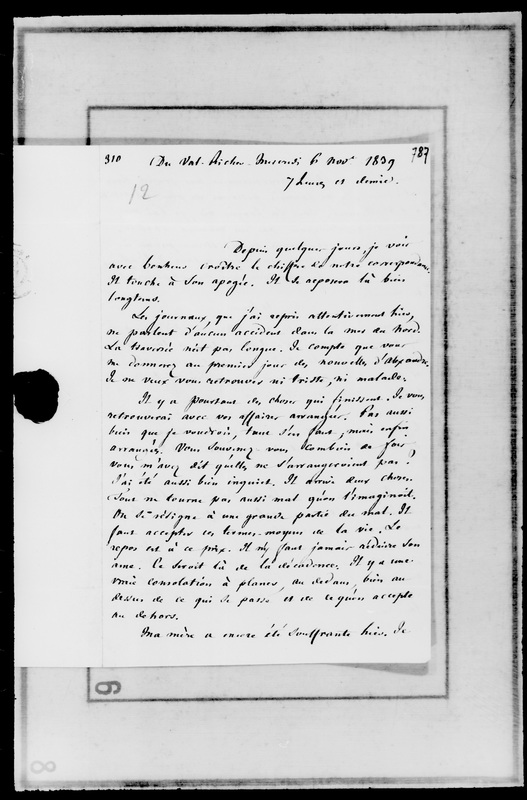 310 Du Val-Richer. Mercredi 6 Nov. 1839 787
7 heures et demie.
12
Depuis quelques jours, je vois
avec bonheur croître le chiffre de notre correspondance.
Il touche à son apogée. Il se reposera là bien
longtems.
Les journaux, que j'ai repris attentivement hier,
ne parlent d'aucun accident dans la mer du Nord.
La traversée n'est pas longue. Je compte que vous
me donnerez au premier jour des nouvelles d'Alexandre.
Je ne veux vous retrouver ni triste, ni malade.
Il y a pourtant des choses qui finissent. Je vous
retrouverai avec vos affaires arrangées. Pas aussi
bien que je voudrois, tant s'en faut, mais enfin
arrangées. Vous souvenez-vous combien de fois
vous m'avez dit qu'elles ne s'arrangeroient pas ?
J'ai été aussi bien inquiet. Il arrive deux choses.
Tout ne tourne pas aussi mal qu'on l'imaginoit.
On se résigne à une grande partie du mal. Il
faut accepter ces termes-moyens de la vie. Le
repos est à ce prix. Il n'y faut jamais réduire son
ame. Ce seroit là de la décadence. Il y a une
vraie consolation à planer, au dedans, bien au
dessus de ce qui se passe, et de ce qu'on accepte
au dehors.
Ma mère a encore été souffrante hier. Je
9
8